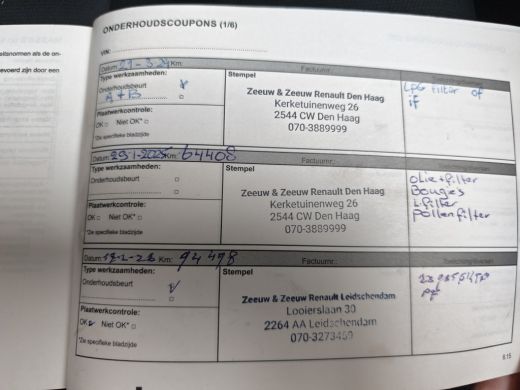 eitsnormen als de on-
evoerd zijn door een
ONDERHOUDSCOUPONS (1/6)
VIN:
Datum: 21-3-24 Km:
Factuurnr.:
Type werkzaamheden:
Onderhoudsbeurt
A+B
Plaatwerkcontrole:
OK □ Niet OK* □
*Zie specifieke bladzijde
Stempel
Zeeuw & Zeeuw Renault Den Haag
Kerketuinenweg 26
2544 CW Den Haag
070-3889999
LPG filter of
if
Datum: 29-1-2025 Km: 64408
Factuurnr.:
Type werkzaamheden:
Onderhoudsbeurt
Plaatwerkcontrole:
OK □ Niet OK* □
*Zie specifieke bladzijde
Stempel
Zeeuw & Zeeuw Renault Den Haag
Kerketuinenweg 26
2544 CW Den Haag
070-3889999
olie+filter
Bougies
L.filter
pollenfilter
Km: 94498
Factuurnr.:
Type werkzaamheden:
Onderhoudsbeurt
Plaatwerkcontrole:
OK Niet OK* □
*Zie specifieke bladzijde
Stempel
Zeeuw & Zeeuw Renault Leidschendam
Looierslaan 30
2264 AA Leidschendam
070-3273459
PF
6.15